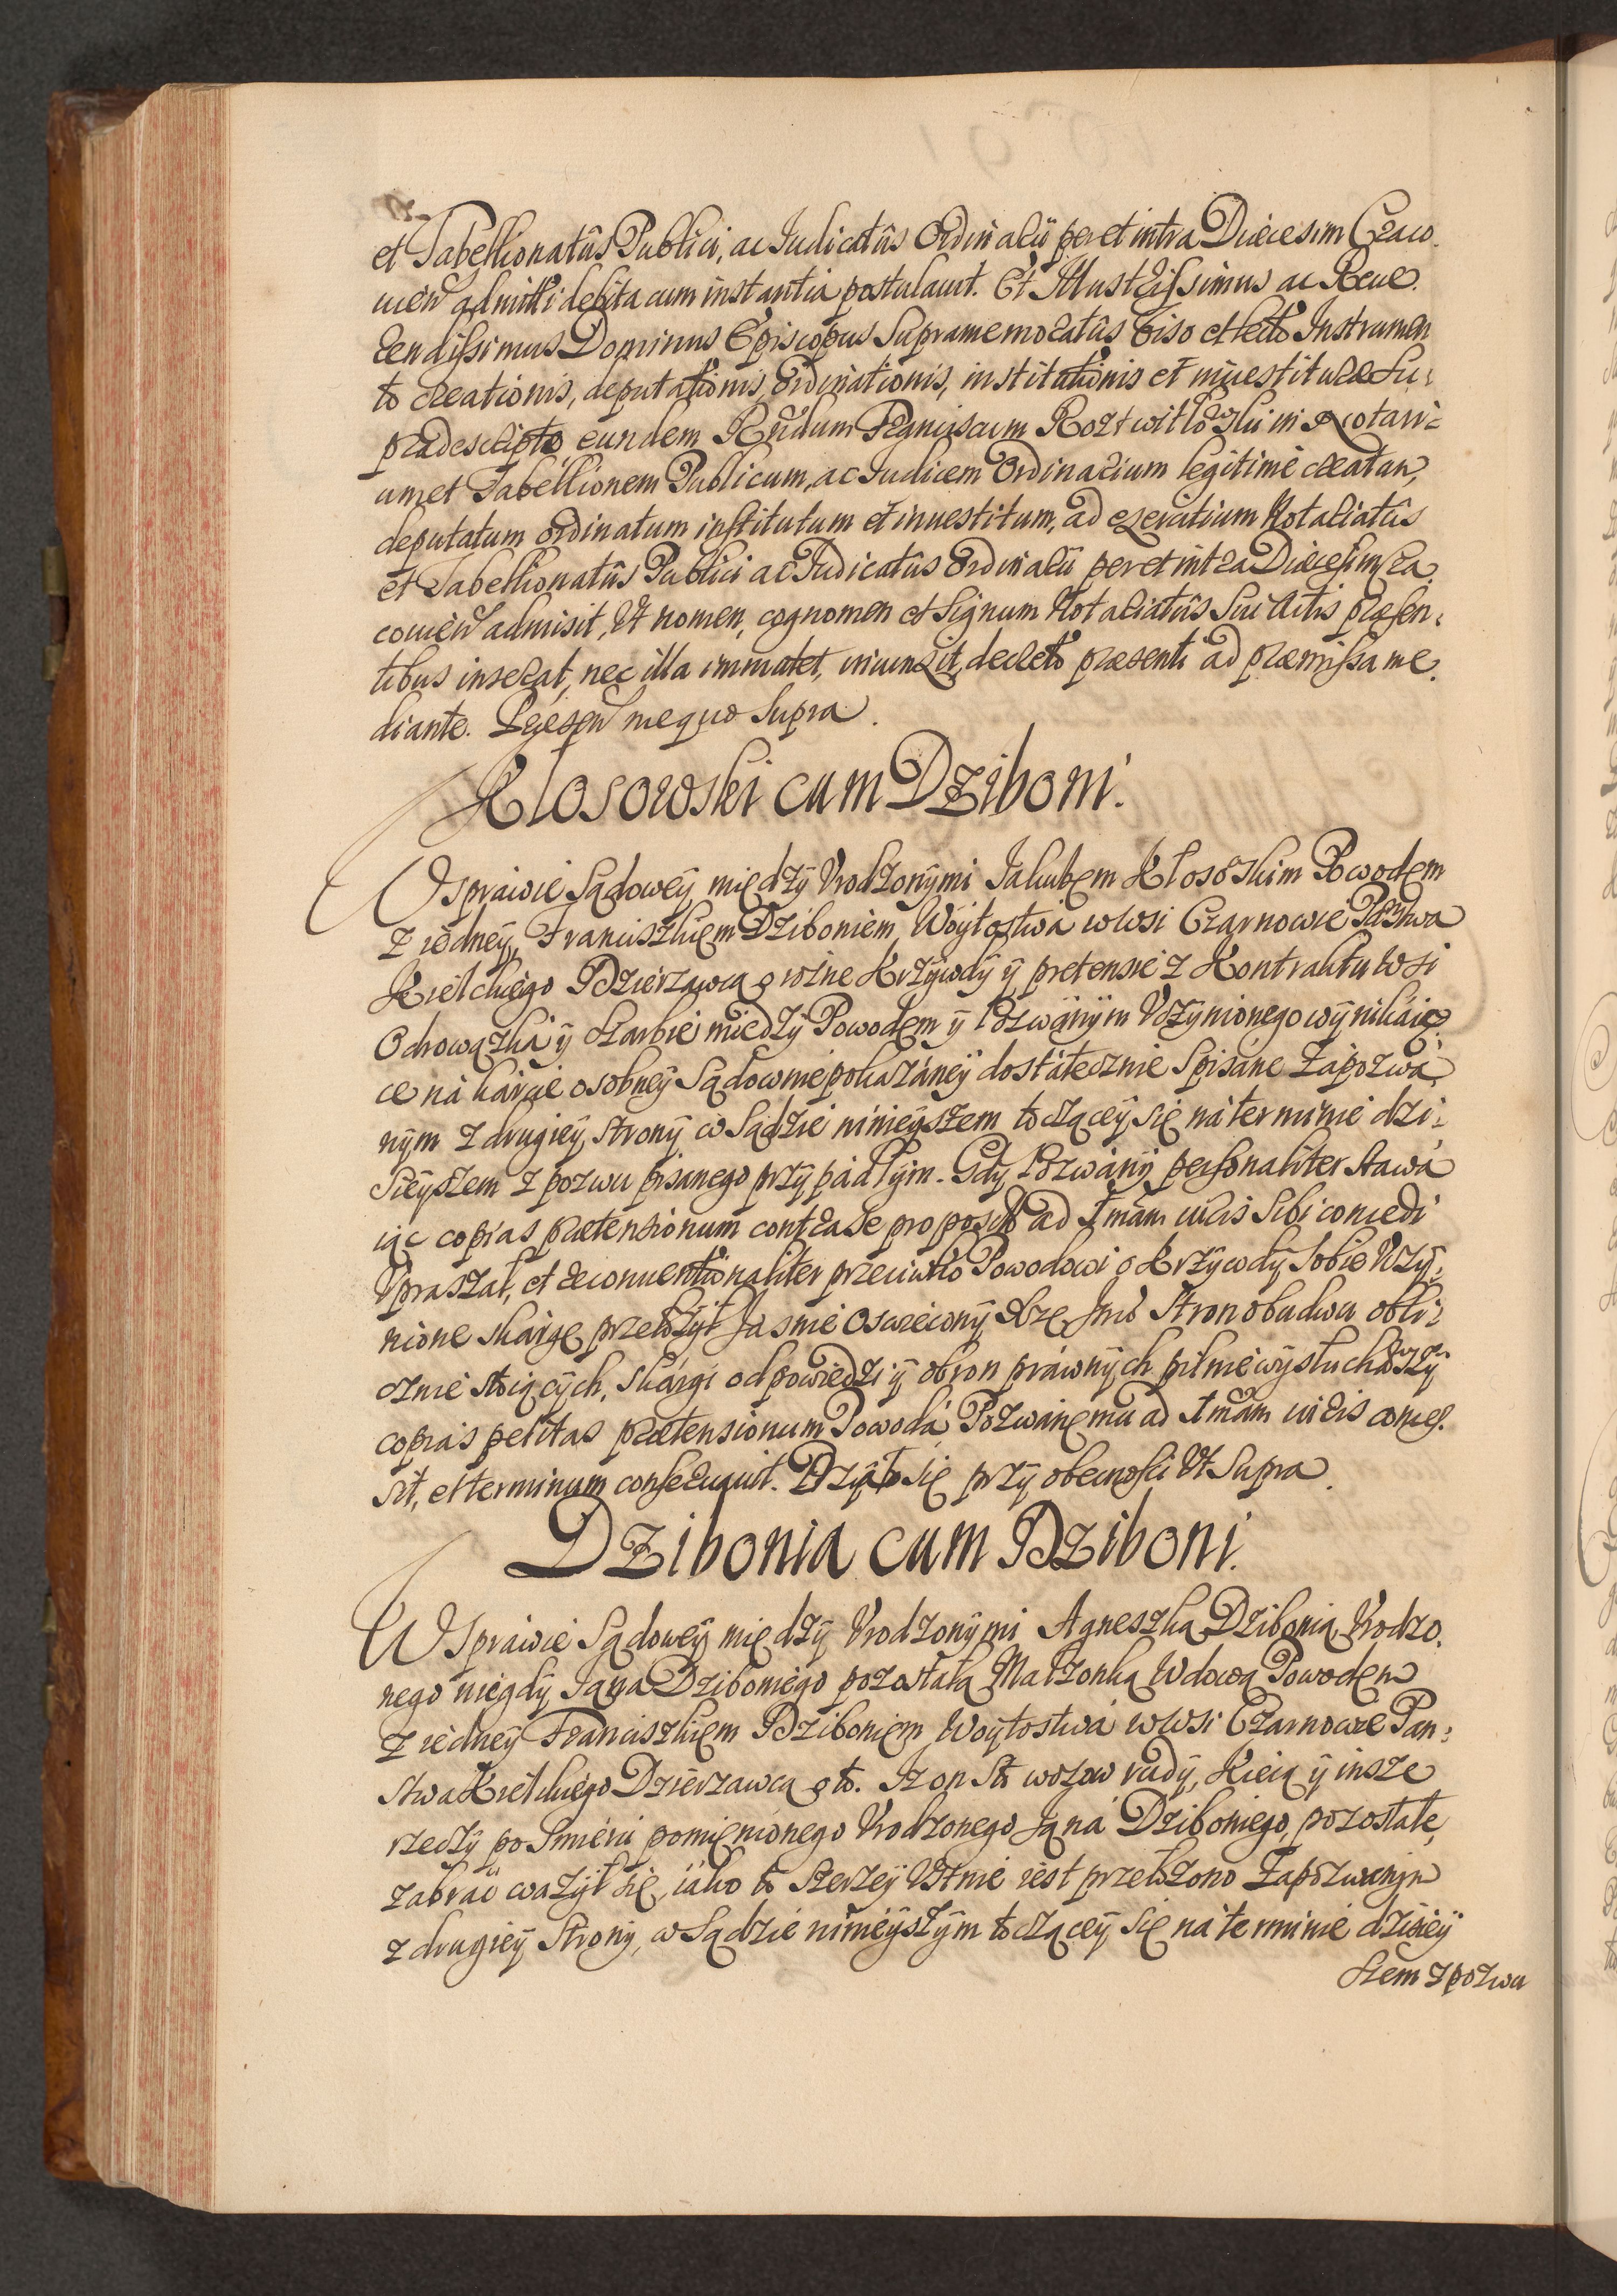 et Tabellionatûs Publici, ac Iudicatûs Ordinarii per et intra Diæcesim Craco-
uien admitti debita cum instantia postulauit. Et Illustrissimus ac Reue-
rendissimus Dominus Episcopus Supramemoratûs viso et lecto Instrumen
to creationis, deputationis, Ordinationis, institutionis et inuestituræ Su-
pradescripto eundem Rndum Franciscum in Notari-
um et Tabellionem Publicum, ac Iudicem Ordinarium legitimè creatum,
deputatum ordinatum institutum et inuestitum, ad exercitium Notariatûs
et Tabellionatûs Publici ac Iudicatûs Ordinarii per et intra Diæcesim Cra-
couien admisit, Vt nomen, cognomen et Signum Notariatûs Sui Actis præsen-
tibus inserat, nec illa immutet, iniunxit, decreto præsenti ad præmissa me-
diante. Præsen meque Supra.
Klosowski cum Dziboni.
W sprawie Sądoweÿ międzÿ Vrodzonÿmi Iakubem Kłosowskim Powodem
z iedneÿ, Franciszkiem Dziboniem, Woÿtostwa wWsi Czarnowie Państwa
Kielckiego Dzierzawcą o rożne Krzÿwdÿ ÿ pretensie z Kontraktu Wsi
Odrowązka ÿ między Powodem ÿ Pozwanÿm Vczÿnionego wÿnikaią-
ce na karcie osobneÿ Sądownie pokazaneÿ dostatecznie Spisane Zapozwa-
nÿm z drugieÿ stronÿ w Sądzie ninieÿszem toczączeÿ się na terminie dzi-
Sieÿszem z pozwu pisanego przÿpadłÿm. Gdÿ Pozwanÿ personaliter stawa
iąc copias prætensionum contra se proposit ad Imam vicis Sibi concedi
Vpraszał, et reconuentionaliter przeciwko Powodowi o Krzÿwdÿ Sobie Vczÿ-
nione skargę przełozÿł Iasnie Oswieconÿ Xze Imć Stron obudwu obli-
cznie stoiącÿch, skargi odpowiedzi ÿ obron prawnÿch pilnie wÿsłuchawszÿ
copias petitas prætensionum Powoda Pozwanemu ad Imam vicis conces-
sit, et terminum conseruauit. Działo się przÿ obecnosci Vt Supra.
Dzibonia cum Dziboni.
W sprawie Sądoweÿ międzÿ Vrodzonÿmi Agneszką Dzibonią Vrodzo-
nego niegdÿ Iana Dziboniego pozostałą Małzonką Wdową Powodem
z iedneÿ Franciszkiem Dziboniem Woÿtostwa wWsi Czarnowie Pan-
stwa Kielckiego Dzierzawcą o to. Iz on Sto wozow rudÿ, ÿ insze
rzeczÿ po Smierci pomięnionego Vrodzonego Iana Dziboniego, pozostałe,
zabrać wazÿł się, iako to szerzeÿ Vstnie iest przełozono Zapozwanÿm
z drugieÿ Stronÿ, w Sądzie ninieÿszÿm toczączeÿ się na terminie dzisieÿ
szem z pozwu